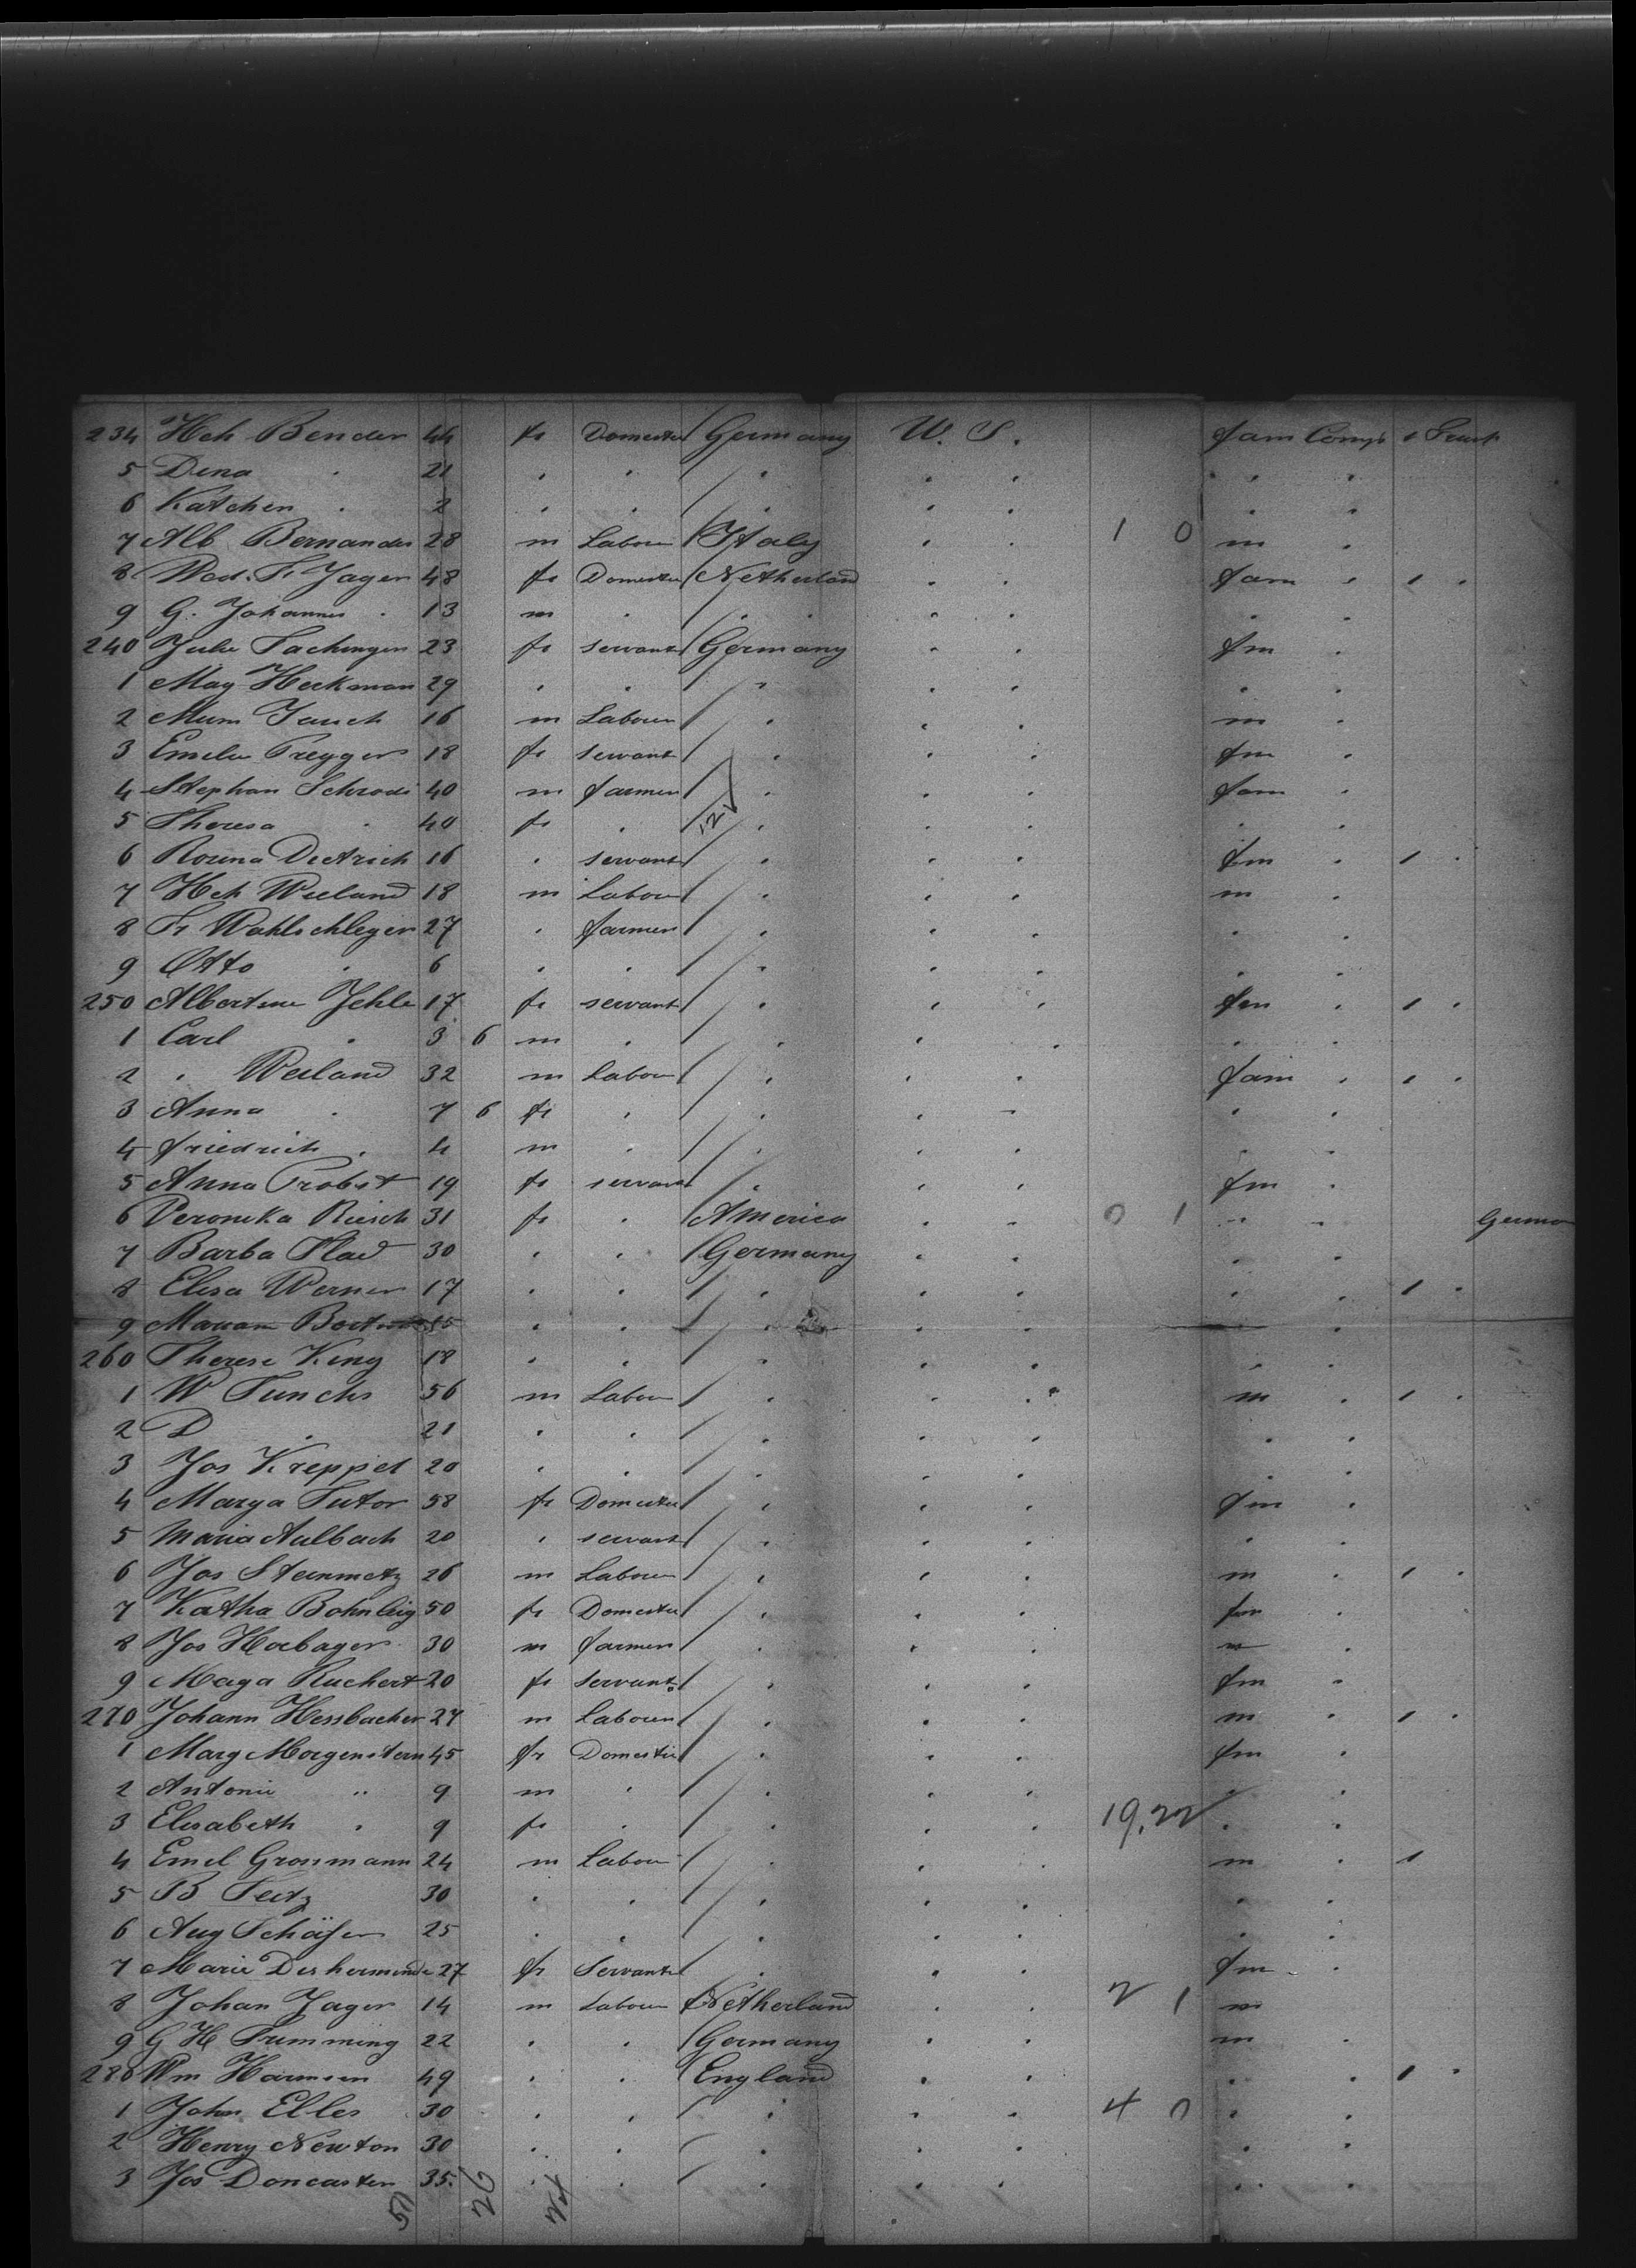 234 Hch Bender 44 fr Domestic Germany U. S. fam Comp 1
5 Dina " 21 " " " " " " "
6 Katchen " 2 " " " " " " "
7 Alb Bernander 28 m Labour Italy " " 1 0 m "
8 Wed. Fr Jager 48 fr Domestic Netherland " " fam " 1 "
9 G. Johannes " 13 m " " " " " "
240 Julie Fachinger 23 fr servant Germany " " fm "
1 May Heckman 29 " " " " " " "
2 Mum Jauch 16 m Labour " " " m "
3 Emilie Preyger 18 fr servant " " " fm "
4 Stephan Schrodi 40 m farmer " " " fam "
5 Theresa " 40 fr " 12 " " " " "
6 Rosina Dietrich 16 " servant " " " fm " 1 "
7 Hch Weeland 18 m Labour " " " m "
8 Fr Wahlschleger 27 " farmer " " " " "
9 Otto " 6 " " " " " " "
250 Albertine Jehle 17 fr servant " " " fm " 1 "
1 Carl " 3 6 m " " " " " "
2 " Weeland 32 m Labour " " " fam " 1 "
3 Anna " 7 6 fr " " " " " "
4 friedrich " 4 m " " " " " "
5 Anna Probst 19 fr servant " " " fm "
6 Veronika Riesch 31 fr " America " " 0 1 " " German
7 Barba Flad 30 " " Germany " " " "
8 Elisa Werner 17 " " " " " " " 1 "
9 Mariam 15 " " " " " " "
260 Therese King 18 " " " " " " "
1 W Funchs 56 m Labour " " " m " 1 "
2 D " 21 " " " " " " "
3 Jos Kreppel 20 " " " " " " "
4 Marga Sutor 58 fr Domestic " " " fm "
5 Maria Aulbach 20 " servant " " " " "
6 Jos Steinmetz 26 m Labour " " " m " 1 "
7 Katha Bohnleig 50 fr Domestic " " " fm "
8 Jos Horbager 30 m farmer " " " m "
9 Maga Ruchert 20 fr servant " " " fm "
270 Johann Hessbacher 27 m Labour " " " m " 1 "
1 Marg Morgenstern 45 fr Domestic " " " fm "
2 Antonie " 9 m " " " " " "
3 Elisabeth " 9 fr " " " " 19,22 " "
4 Emil Grosmann 24 m Labour " " " m " 1
5 B Seitz 30 " " " " " " "
6 Aug Schäfer 25 " " " " " " "
7 Marie 27 fr Servant " " " fm "
8 Johan Jager 14 m Labour Netherland " " 2 1 m
9 G H Trumming 22 " " Germany " " m "
280 Wm Harmsen 49 " " England " " " " 1 "
1 John Elles 30 " " " " " 4 0 " "
2 Henry Newton 30 " " " " " " "
3 Jos Doncaster 35 " " " " " " "